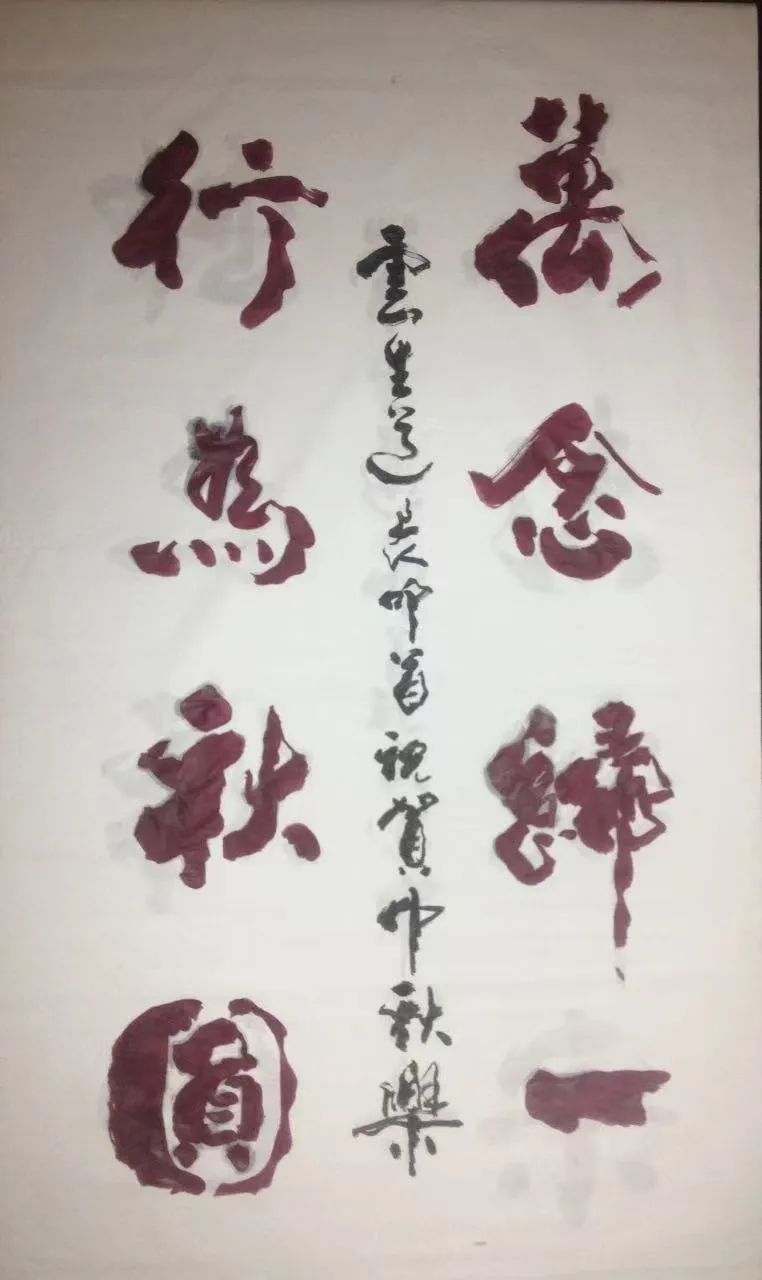 萬念歸一
雲生道長叩首祝賀中秋樂
行為秋圓